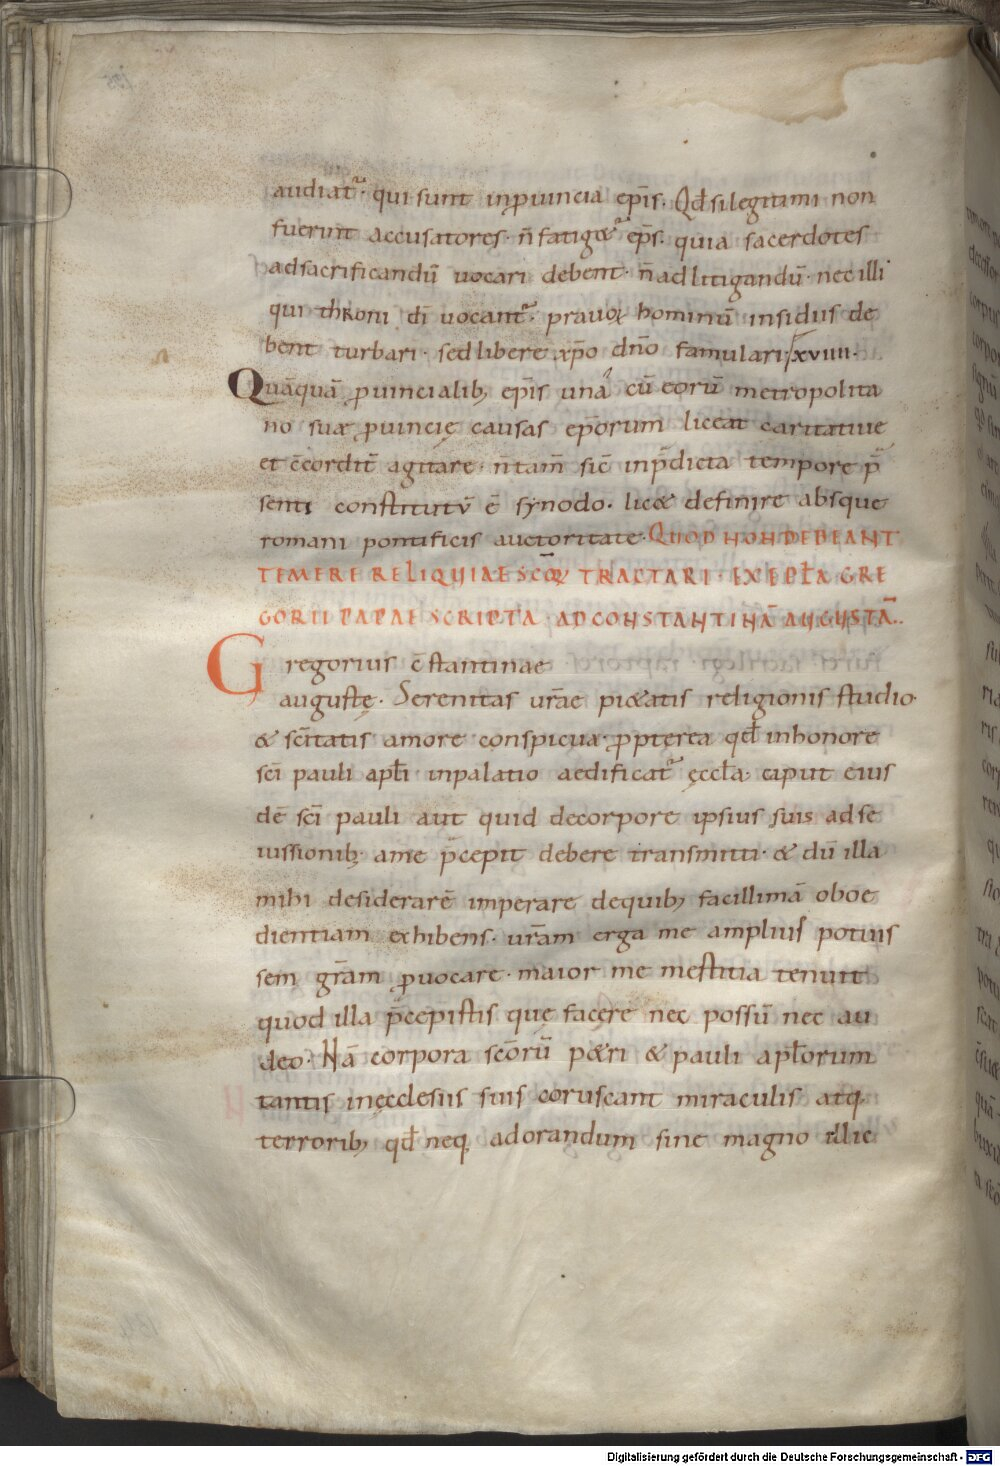 audiat᷑· qui sunt in ꝓuincia ep̄is. Qd̄ si legitimi non
fuerint accusatores· n̄ fatig&᷑ ep̄s. quia sacerdotes
ad sacrificandū uocari debent· n̄ ad litigandū· nec illi
qui throni dī uocant᷑· prauoꝝ hominū insidiis de
bent turbari· sed libere xp̄o dn̄o famulari; xviiii·
Quāquā ꝓuincialib; ep̄is una cū eorū metropolita
no suæ ꝓuincię causas ep̄orum liceat caritatiue
et c̄corditr̄ agitare· n̄ tam̄ sic̄ in p̄dicta tempore p̄
senti constitutū ē synodo· lic& definire absque
romani pontificis auctoritate· QUOD NON DEBEANT
TEMERE RELIQUIAE SC̄OꝜ TRACTARI· EX EPL̄A GRE
GORII PAPAE SCRIPTA AD CONSTANTINĀ AUGUSTĀ..
Gregorius c̄stantinae
augustę· Serenitas ur̄ae pi&atis religionis studio·
& sc̄itatis amore conspicua· ꝓpterea qd̄ in honore
sc̄i pauli apl̄i in palatio aedificat᷑ ęccl̄a· caput eius
dē sc̄i pauli aut quid de corpore ipsius suis ad se
iussionib; a me p̄cepit debere transmitti· & dū illa
mihi desiderarē imperare de quib; facillimā oboe
dientiam exhibens· ur̄am erga me amplius potuis
sem gr̄am ꝓuocare· maior me mestitia tenuit
quod illa p̄cepistis quę facere nec possū nec au
deo· Nā corpora sc̄orū p&ri & pauli apl̄orum
tantis in ęcclesiis suis coruscant miraculis atq;
terrorib; qd̄ neq; adorandum sine magno illic
Digitalisierung gefördert durch die Deutsche Forschungsgemeinschaft - DFG